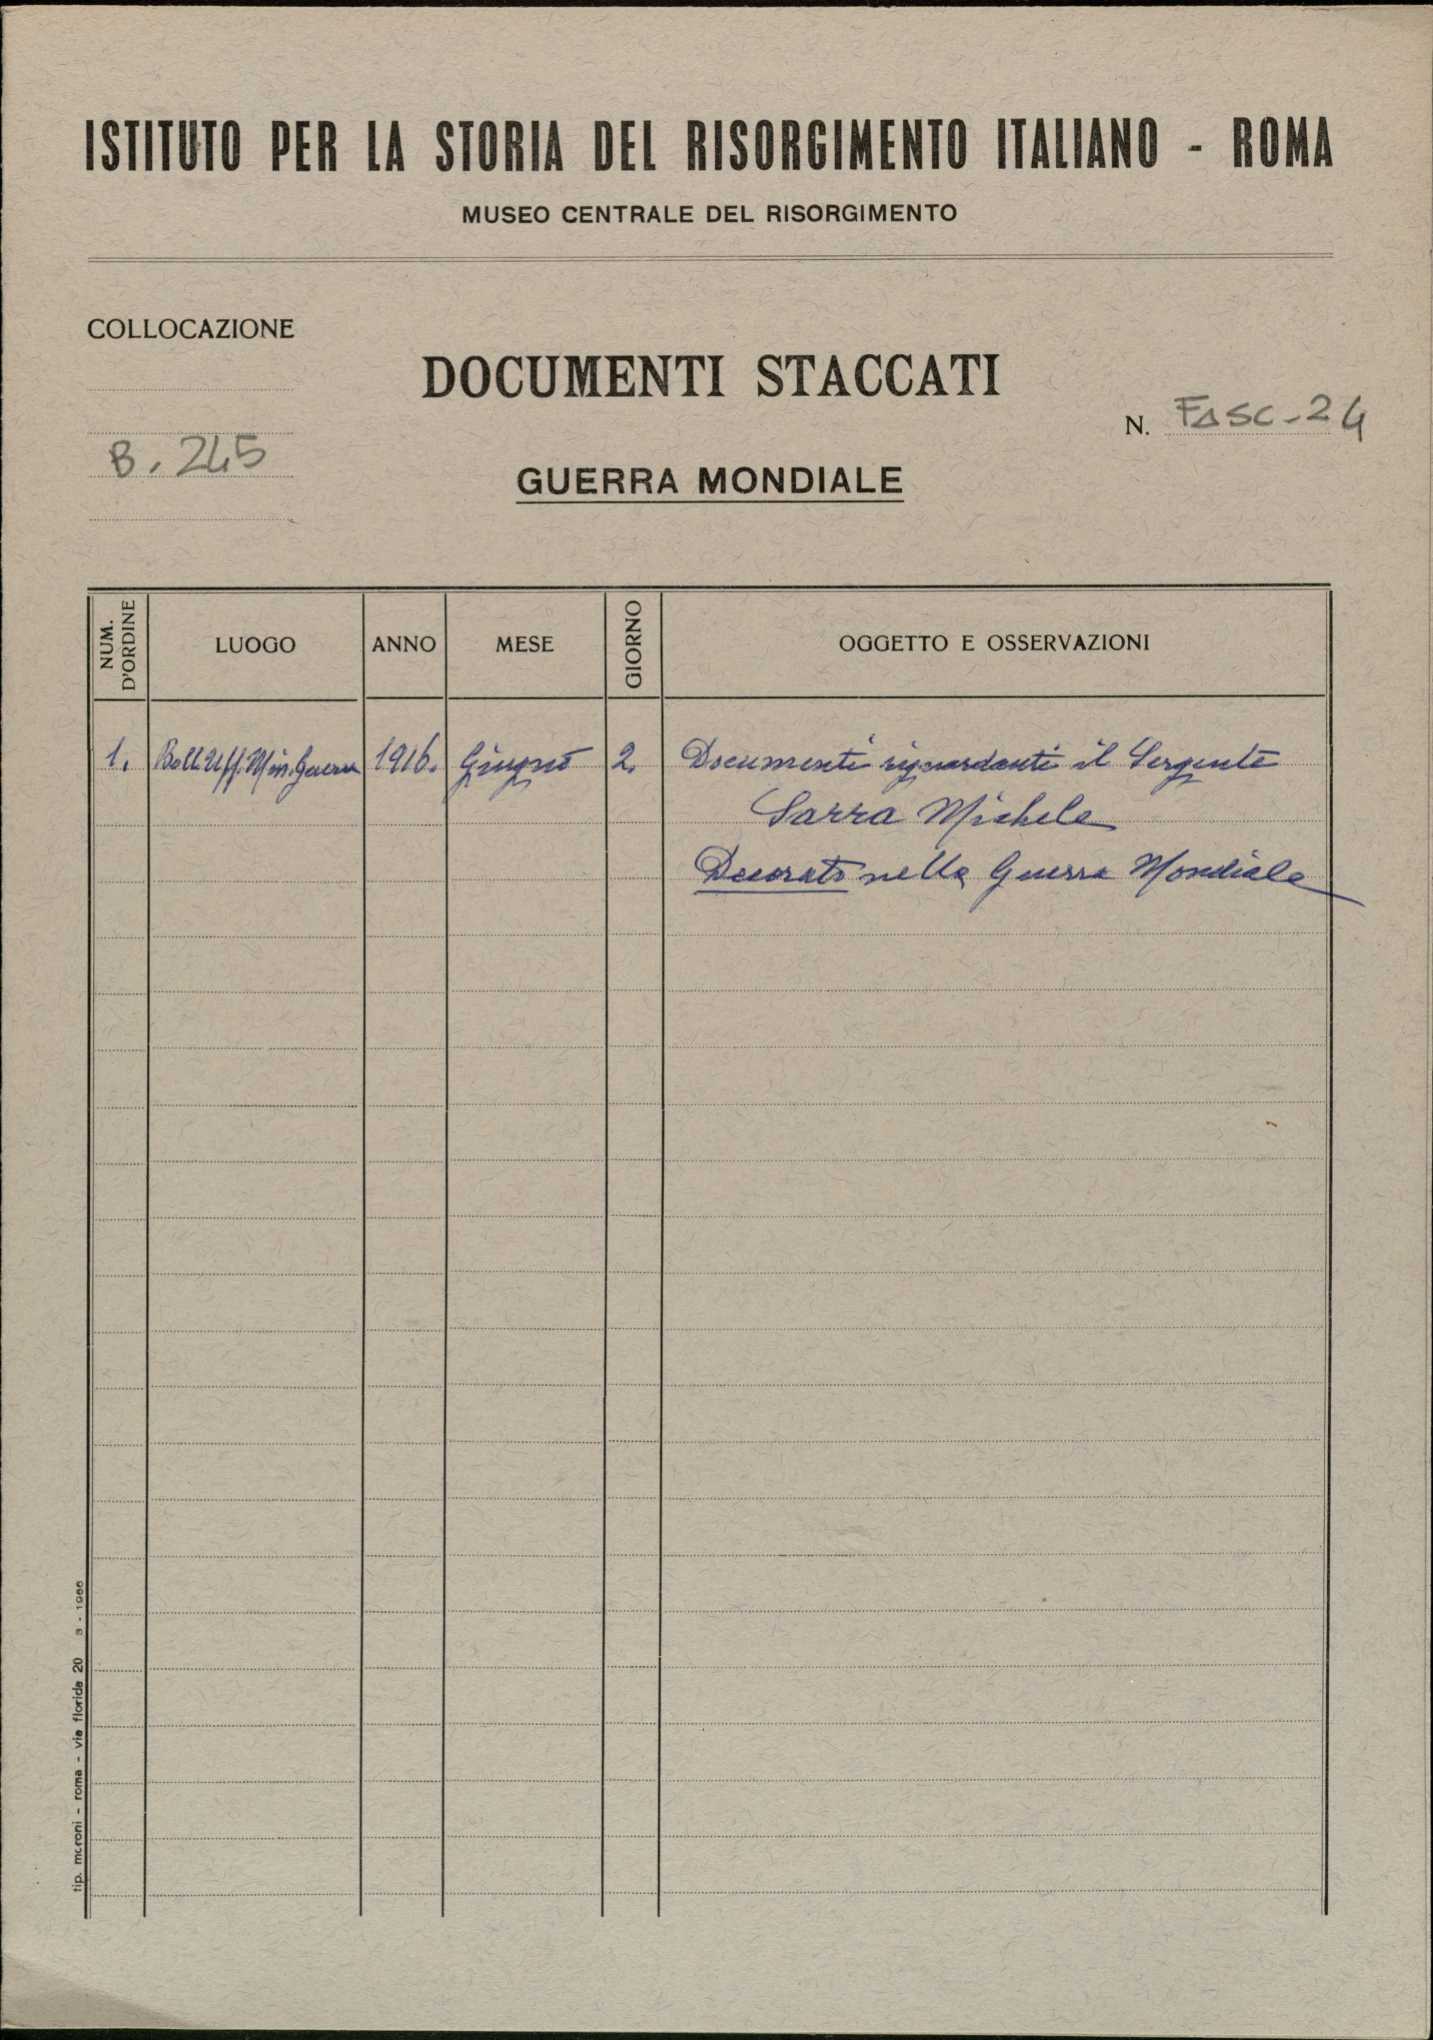 ISTITUTO PER LA STORIA DEL RISORGIMENTO ITALIANO - ROMA
MUSEO CENTRALE DEL RISORGIMENTO
COLLOCAZIONE
DOCUMENTI STACCATI
N. FASC-24
B. 245
GUERRA MONDIALE
NUM. D'ORDINE LUOGO ANNO MESE GIORNO OGGETTO E OSSERVAZIONI
1. Boll. Uff. Min. Guerra 1916. Giugno 2. Documenti riguardanti il Sergente
Sarra Michele
Decorato nella Guerra Mondiale
tip. moroni - roma - via florida 20 3 - 1966